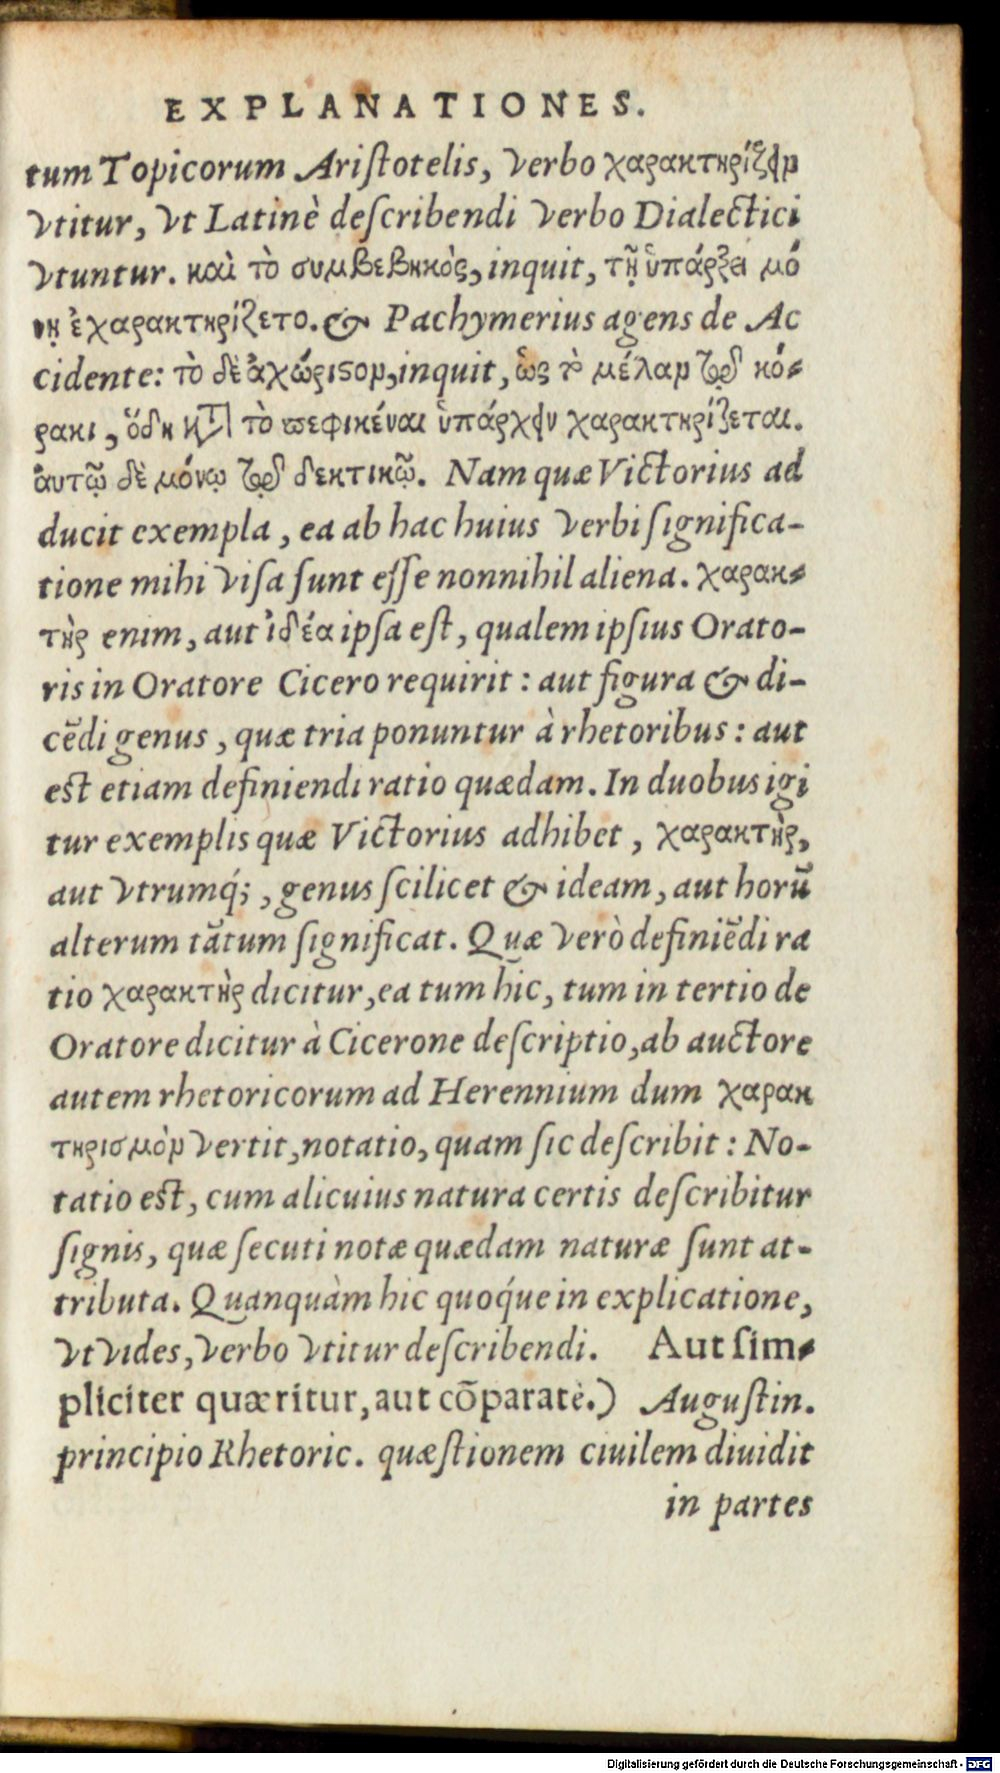 EXPLANATIONES.
tum Topicorum Ariſtotelis, verbo χαρακτηρίζειν
vtitur, vt Latinè deſcribendi verbo Dialectici
vtuntur. καὶ τὸ συμβεβηκὸς, inquit, τῇ ὑπάρξει μό
νῃ ἐχαρακτηρίζετο. & Pachymerius agens de Ac
cidente: τὸ δὲ ἀχώριϛον, inquit, ὡς τὸ μέλαν τῷ κό-
ρακι, ὅδη κατὰ τὸ πεφικέναι ὑπάρχειν χαρακτηρίζεται.
αυτῷ δὲ μόνῳ τῷ δεκτικῷ. Nam quæ Victorius ad
ducit exempla, ea ab hac huius verbi ſignifica-
tione mihi viſa ſunt eſſe nonnihil aliena. χαρακ-
τὴρ enim, aut ἰδέα ipſa eſt, qualem ipſius Orato-
ris in Oratore Cicero requirit: aut figura & di-
cēdi genus, quæ tria ponuntur à rhetoribus: aut
eſt etiam definiendi ratio quædam. In duobus igi
tur exemplis quæ Victorius adhibet, χαρακτὴρ,
aut vtrumq́;, genus ſcilicet & ideam, aut horū
alterum tātum ſignificat. Quæ verò definiēdi ra
tio χαρακτὴρ dicitur, ea tum hic, tum in tertio de
Oratore dicitur à Cicerone deſcriptio, ab auctore
autem rhetoricorum ad Herennium dum χαρακ
τηρισμὸν vertit, notatio, quam ſic deſcribit: No-
tatio eſt, cum alicuius natura certis deſcribitur
ſignis, quæ ſecuti notæ quædam naturæ ſunt at-
tributa. Quanquàm hic quoq́ue in explicatione,
vt vides, verbo vtitur deſcribendi. Aut ſim-
pliciter quæritur, aut cōparatè.) Auguſtin.
principio Rhetoric. quæſtionem ciuilem diuidit
in partes
Digitalisierung gefördert durch die Deutsche Forschungsgemeinschaft - DFG